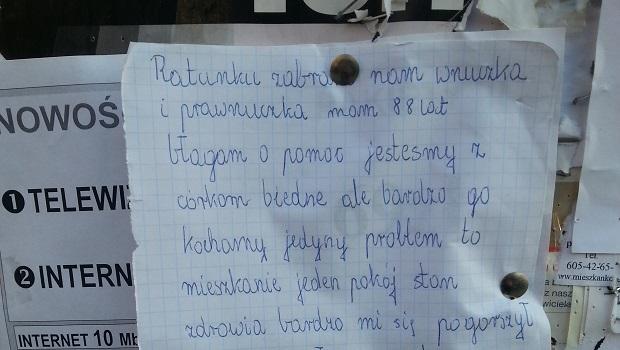 Ratunku zabra nam wnuczka
i prawnuczka mam 88 lat
błagam o pomoc jestesmy z
córkom biedne ale bardzo go
kochamy jedyny problem to
mieszkanie jeden pokój stan
zdrowia bardzo mi się pogorszył
NOWOŚ
1 TELEWIZ
2 INTERN
INTERNET 10 Mb
Tel.
605-42-65-
www.mieszkanke